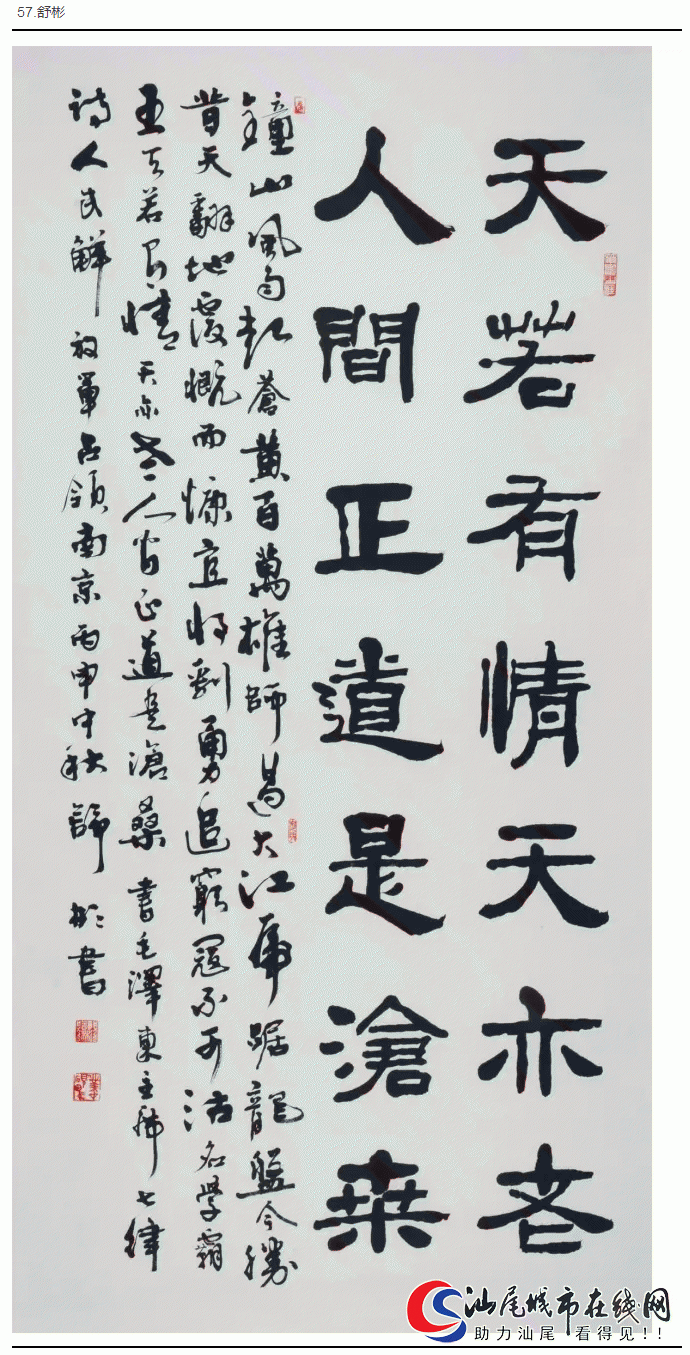 57.舒彬
天若有情天亦老
人間正道是滄桒
鐘山風雨起蒼黄百萬雄師過大江虎踞龍盤今勝
昔天翻地覆慨而慷宜將剩勇追窮寇不可沽名學霸
王天若有情天亦老人間正道是滄桑 書毛澤東主席七律
詩人民解放軍占領南京丙申中秋舒彬書
汕尾城市在线网
助力汕尾 看得见!!